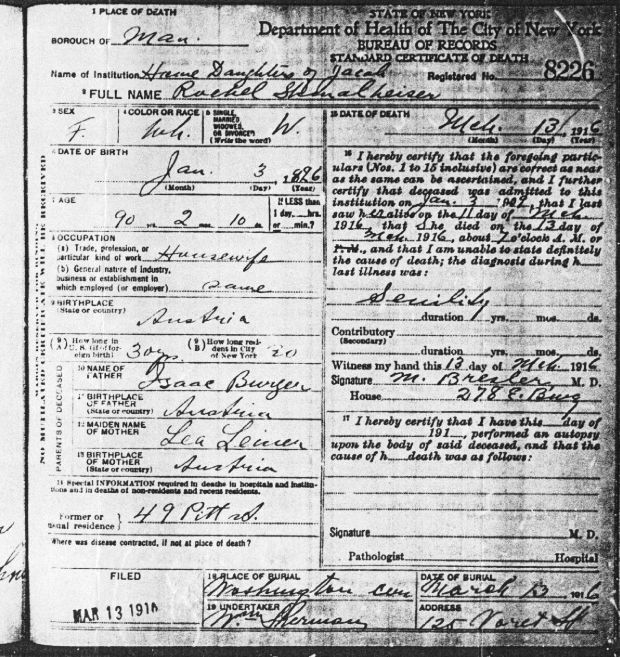 1 PLACE OF DEATH
STATE OF NEW YORK
Department of Health of The City of New York
BUREAU OF RECORDS
STANDARD CERTIFICATE OF DEATH
BOROUGH OF Man.
Name of Institution Home Daughters of Jacob Registered No. 8226
2 FULL NAME Rachel
3 SEX F.
4 COLOR OR RACE Wh.
5 SINGLE, MARRIED WIDOWED, OR DIVORCED (Write the word) W.
6 DATE OF BIRTH
Jan. 3, 1826
(Month) (Day) (Year)
7 AGE
90 yrs. 2 mos. 10 ds.
If LESS than 1 day, hrs. or min.?
8 OCCUPATION
(a) Trade, profession, or particular kind of work Housewife
(b) General nature of industry, business or establishment in which employed (or employer) same
9 BIRTHPLACE (State or country) Austria
(9 A) How long in U. S. (if foreign birth) 30 yrs.
(9 B) How long resident in City of New York 30
PARENTS OF DECEASED
10 NAME OF FATHER Isaac Burger
11 BIRTHPLACE OF FATHER (State or country) Austria
12 MAIDEN NAME OF MOTHER Lea
13 BIRTHPLACE OF MOTHER (State or country) Austria
14 Special INFORMATION required in deaths in hospitals and institutions and in deaths of non-residents and recent residents.
Former or usual residence 49 Pitt St.
Where was disease contracted, if not at place of death?
FILED
MAR 13 1916
15 DATE OF DEATH
Mch. 13, 1916
(Month) (Day) (Year)
16 I hereby certify that the foregoing particulars (Nos. 1 to 15 inclusive) are correct as near
as the same can be ascertained, and I further
certify that deceased was admitted to this
institution on Jan. 3 that I last
saw her alive on the 11 day of Mch.
1916, that She died on the 13 day of
Mch. 1916, about 7 o'clock A. M. or
P. M., and that I am unable to state definitely
the cause of death; the diagnosis during h
last illness was:
Senility
duration yrs. mos. ds.
Contributory
(Secondary)
duration yrs. mos. ds.
Witness my hand this 13 day of Mch. 1916
Signature M. Bresler, M. D.
House 278 E. Bway
17 I hereby certify that I have this day of
191 , performed an autopsy
upon the body of said deceased, and that the
cause of h death was as follows:
Signature M. D.
Pathologist Hospital
18 PLACE OF BURIAL
Washington cem
DATE OF BURIAL
March 13 1916
19 UNDERTAKER
Wm Sherman
ADDRESS
125 St